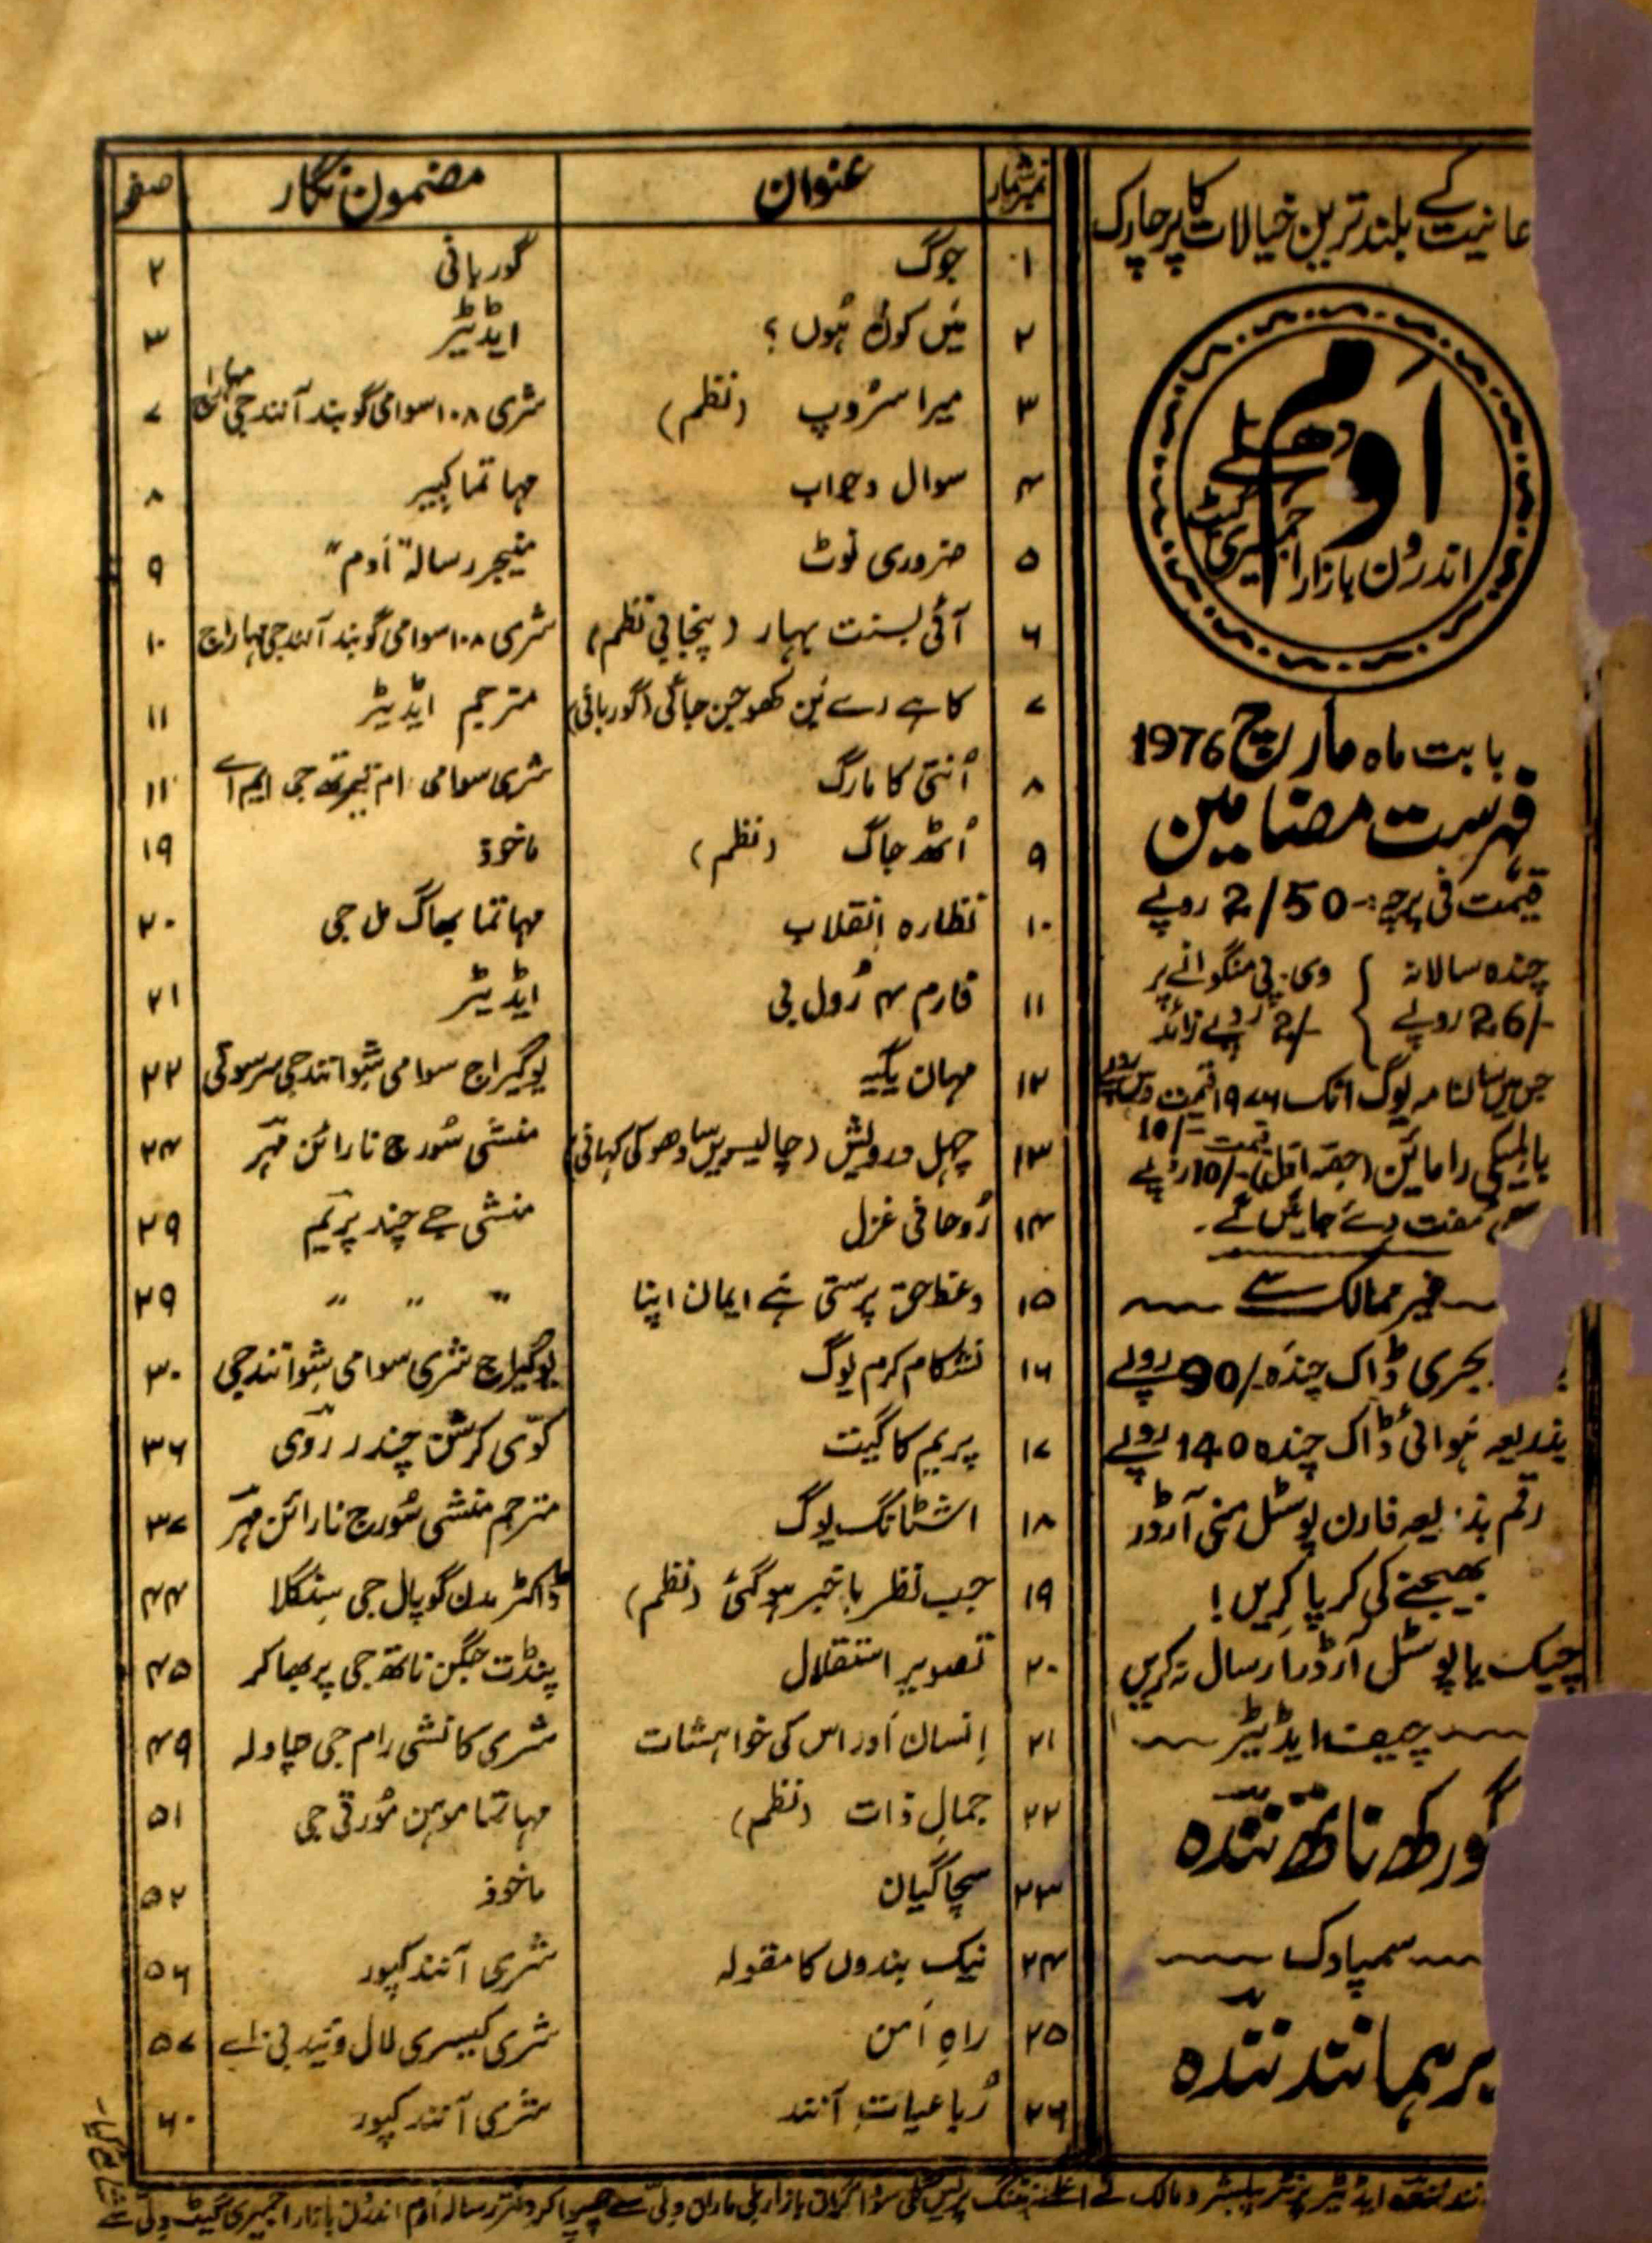 عانیت کے بلند ترین خیالات کا پرچارک
اوم
دھلی
اندرُون بازار اجمیری گیٹ
بابت ماہ مارچ 1976
فہرست مضامین
قیمت فی پرچہ :- 2/50 روپے
چندہ سالانہ } وی۔ پی منگوانے پر
26/- روپے } 2/- روپے زائد
جس میں سالنامہ یوگ انک ۱۹۷۶ قیمت دس روپے
قیمت 10/-
بالمیکی رامائن (حصہ اول) 10/- روپے
مفت دئے جائیں گے۔
غیر ممالک سے
بحری ڈاک چندہ 90/- روپے
بذریعہ ہوائی ڈاک چندہ 140 روپے
رقم بذریعہ فارن پوسٹل منی آرڈر
بھیجنے کی کرپا کریں !
چیک یا پوسٹل آرڈر ارسال نہ کریں
چیف ایڈیٹر
گورکھ ناتھ نندہ
سمپادک
برہمانند نندہ
نمبر شمار عنوان مضمون نگار صفحہ
۱ جوگ گوربانی ۲
۲ میں کون ہُوں ؟ ایڈیٹر ۳
۳ میرا سرُوپ (نظم) شری ۱۰۸ سوامی گوبند آنند جی مہاراج ۷
۴ سوال و جواب مہاتما کبیر ۸
۵ ضروری نوٹ منیجر رسالہ "اَوم" ۹
۶ آئی بسنت بہار (پنجابی نظم) شری ۱۰۸ سوامی گوبند آنند جی مہاراج ۱۰
۷ کاہے رے بن کھوجن جائی (گوربانی) مترجم ایڈیٹر ۱۱
۸ اُنتی کا مارگ شری سوامی رام تیرتھ جی ایم اے ۱۱
۹ اُٹھ جاگ (نظم) ماخوذ ۱۹
۱۰ نظارہ اِنقلاب مہاتما بھاگ مل جی ۲۰
۱۱ فارم ۴ رُول بی ایڈیٹر ۲۱
۱۲ مہان یگیہ یوگیراج سوامی شِوانند جی سرسوتی ۲۲
۱۳ چہل درویش (چالیسویں سادھو کی کہانی) منشی سُورج نارائن مہر ۲۴
۱۴ رُوحانی غزل منشی جے چند پریم ۲۹
۱۵ وعظ حق پرستی ہے ایمان اپنا " " " ۲۹
۱۶ نشکام کرم یوگ یوگیراج شری سوامی شِوانند جی ۳۰
۱۷ پریم کا گیت کوّی کرشن چندر روّی ۳۶
۱۸ اشٹانگ یوگ مترجم منشی سُورج نارائن مہر ۳۷
۱۹ جب نظر باخبر ہو گئی (نظم) ڈاکٹر مدن گوپال جی سِنگلا ۴۴
۲۰ تصویرِ استقلال پنڈت جگن ناتھ جی پربھاکر ۴۵
۲۱ اِنسان اَور اس کی خواہشات شری کانشی رام جی چاولہ ۴۹
۲۲ جمالِ ذات (نظم) مہاتما موہن مُورتی جی ۵۱
۲۳ سچا گیان ماخوذ ۵۲
۲۴ نیک بندوں کا مقولہ شری آنند کپور ۵۶
۲۵ راہِ اَمن شری کیسری لال وئید بی۔اے ۵۷
۲۶ رُباعیاتِ آنند شری آنند کپور ۶۰
نند نندہ ایڈیٹر پرنٹر پبلیشر و مالک نے اعلےٰ پرنٹنگ پریس گلی سوداگران بازار بلی ماراں دِلی سے چھپوا کر دفتر رسالہ اَوم اندرُون بازار اجمیری گیٹ دِلی سے شائع کیا۔